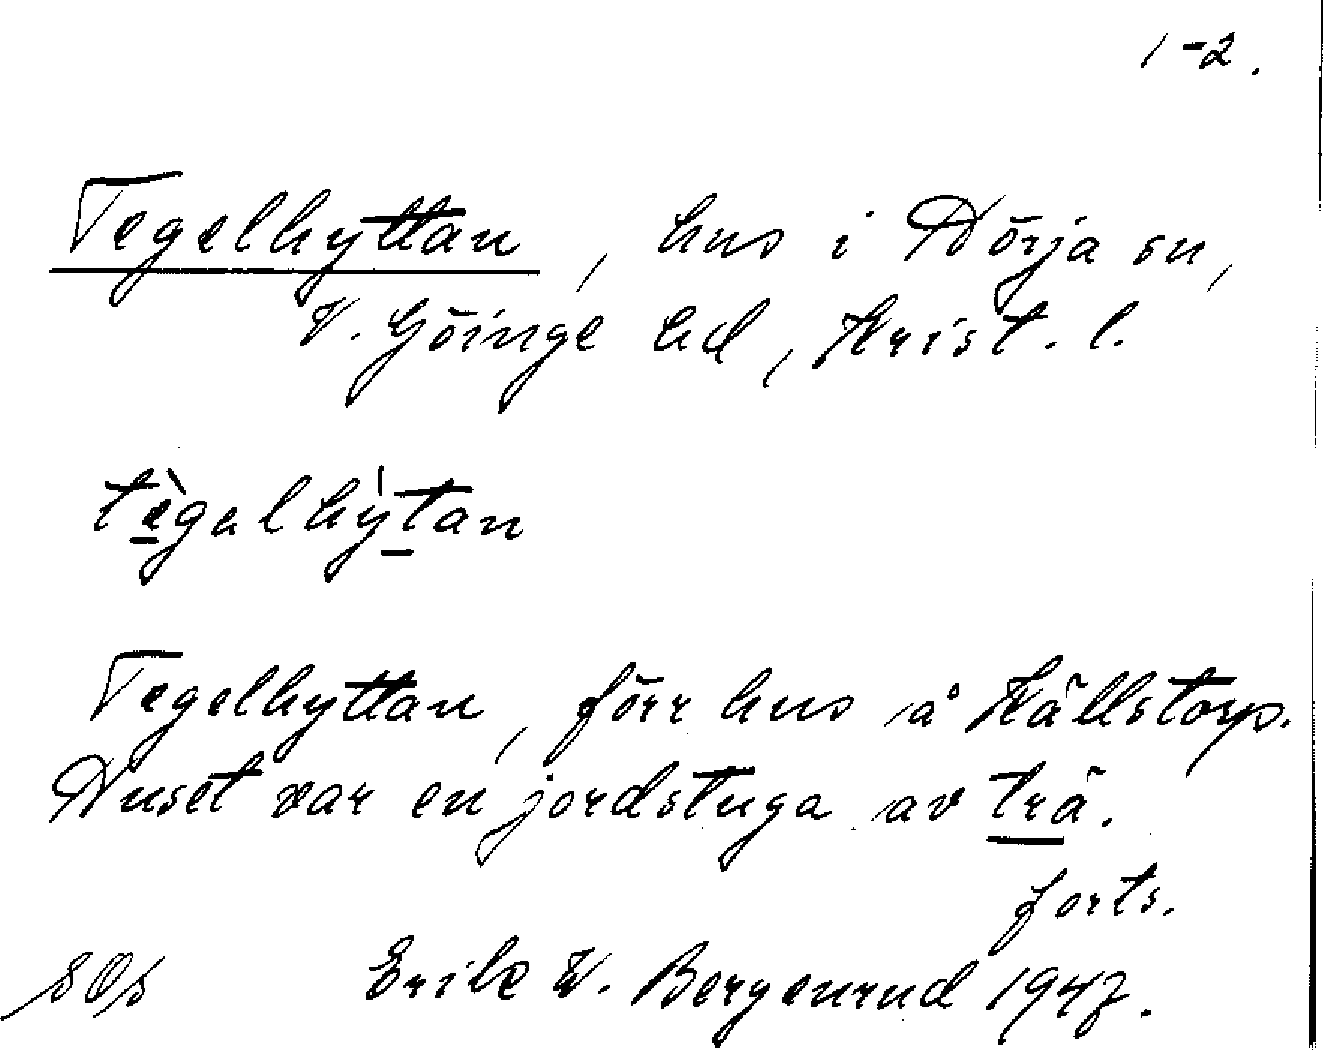 1-2.
Tegelhyttan, hus i Hörja sn,
V. Göinge hd, Krist. l.
tègalhỳtan
Tegelhyttan, förr hus å Källstorp.
Huset var en jordstuga av trä.
forts.
Erik W. Bergenrud 1947.